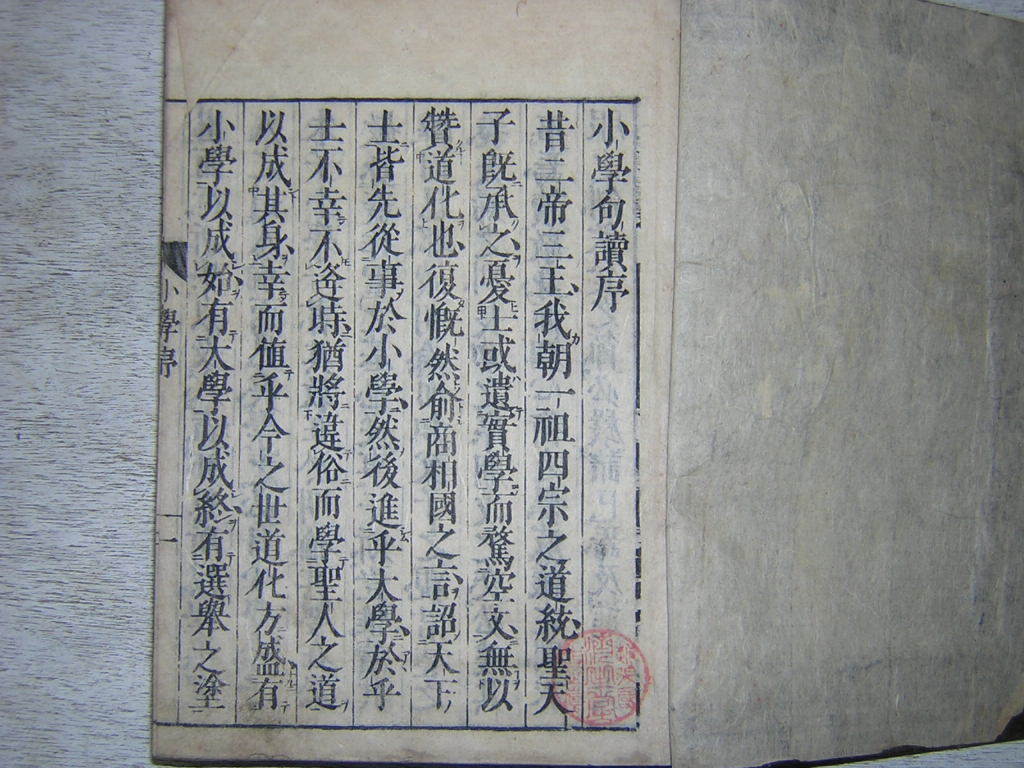 小學句讀序
昔二帝三王我朝一祖四宗之道統聖天
子既承之憂士或遺實學而騖空文無以
贊道化也復慨然俞商相國之言詔天下
士皆先從事於小學然後進乎大學於乎
士不幸不逄時猶將違俗而學聖人之道
以成其身幸而値乎今之世道化方盛有
小學以成始有大學以成終有選舉之塗
小學序
一